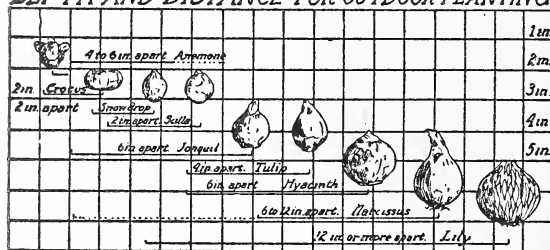 DEPTH AND DISTANCE FOR OUTDOOR PLANTING
1 in.
4 to 6 in. apart Anemone
2 in.
2 in. Crocus
3 in.
2 in. apart Snowdrop
2 in. apart Scilla
4 in.
6 in. apart Jonquil
5 in.
4 in. apart. Tulip
6 in. apart Hyacinth
6 to 12 in. apart. Narcissus
12 in. or more apart. Lily